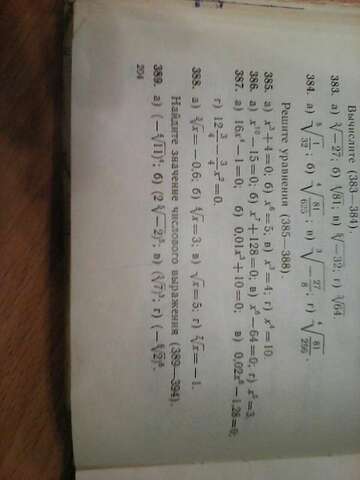 Вычислите (383—384).
383. а) ∛−27; б) ∜81; в) ⁵√−32; г) ∛64.
384. а) ⁵√1/32; б) ∜81/625; в) ∛−27/8; г) ∜81/256.
Решите уравнения (385—388).
385. а) x³+4=0; б) x⁶=5; в) x³=4; г) x⁴=10.
386. а) x¹⁰−15=0; б) x⁷+128=0; в) x⁶−64=0; г) x⁵=3.
387. а) 16x⁴−1=0; б) 0,01x³+10=0; в) 0,02x⁶−1,28=0;
г) 12 3/4−3/4x²=0.
388. а) ∛x=−0,6; б) ∜x=3; в) √x=5; г) ⁷√x=−1.
Найдите значение числового выражения (389—394).
389. а) (−∜11)⁴; б) (2⁵√−2)⁵; в) (∛7)³; г) (−⁶√2)⁶.
204